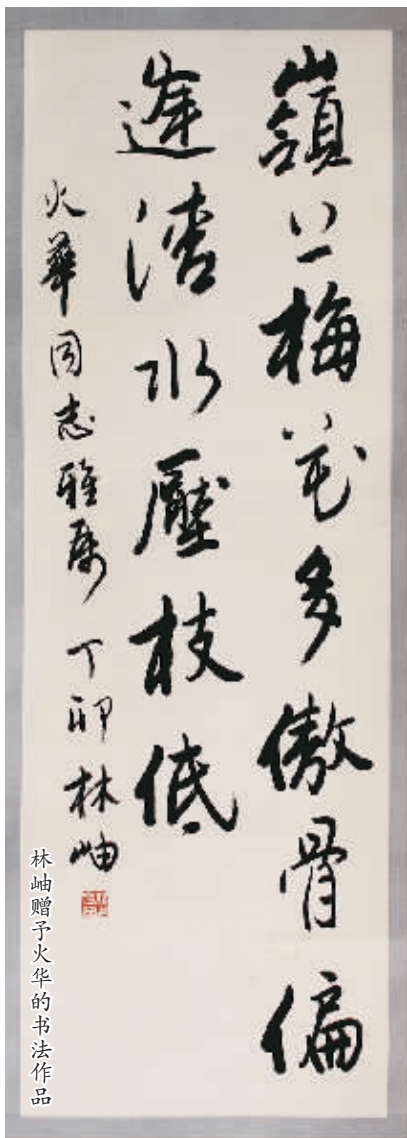 嶺上梅花多傲骨偏
逢清水壓枝低
火華同志雅属 丁卯 林岫
林岫赠予火华的书法作品